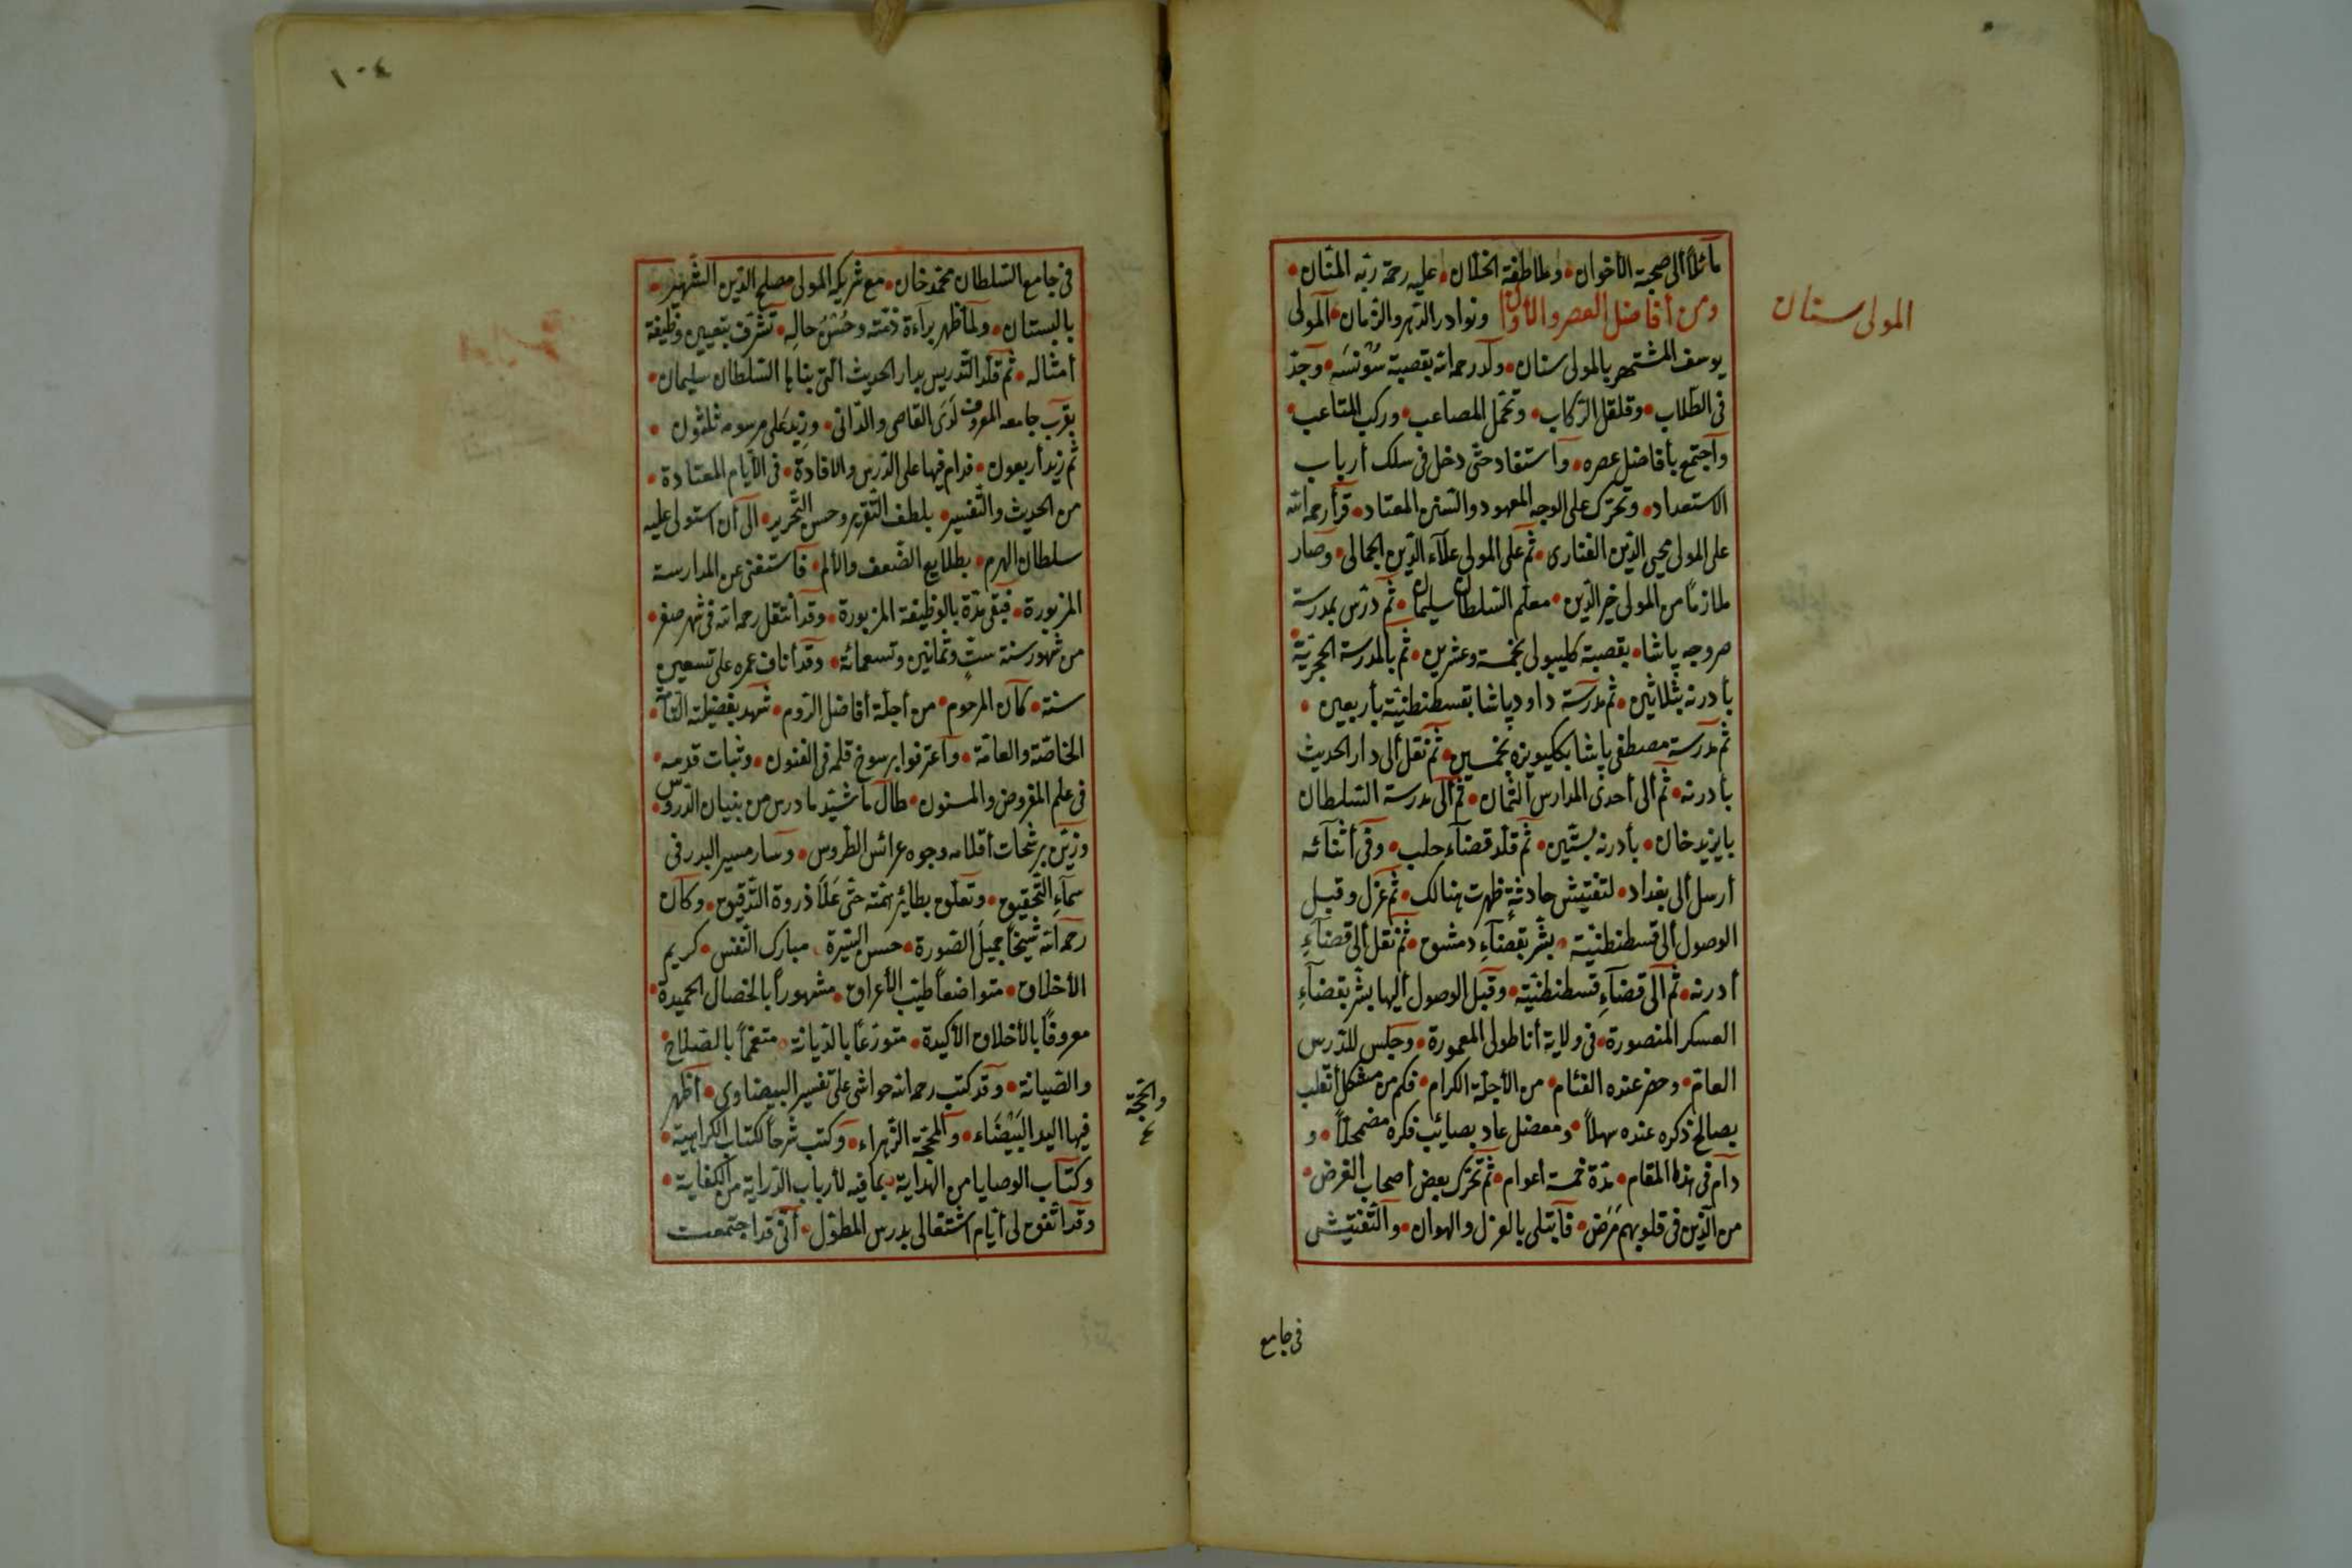 المولى سنان
مائلاً ألى صحبة الأخوان • وملاطفة الخلّان • عليه رحمة ربّه المنّان •
ومن أفاضل العصر والأوان ونوادر الدّهر والزّمان • المولى
يوسف المشتهر بالمولى سنان • ولد رحمه الله بقصبة سُونسَه • وجدّ
فى الطّلاب • وقلقل الرّكاب • وتحمّل المصاعب • وركب المتاعب •
وأجتمع بأفاضل عصره • وأستفاد حتّى دخل فى سلك أرباب
الاستعداد • وتحرّك على الوجه المعهود والسّنن المعتاد • قرأ رحمه الله
على المولى محيى الدّين الفنارى • ثم على المولى علآء الدّين الجمالى • وصار
ملازمًا من المولى خير الدّين • معلّم السّلطان سليمان • ثم درّس بمدرسة
صروجه پاشا • بقصبة كليبولى بخمسة وعشرين • ثم بالمدرسة الحجريّة •
بأدرنه بثلاثين • ثم مدرسة داود پاشا بقسطنطنيّة بأربعين •
ثم مدرسة مصطفى پاشا بككبويزه بخمسين • ثم نقل ألى دار الحديث
بأدرنه • ثم ألى أحدى المدارس الثّمان • ثم ألى مدرسة السّلطان
بايزيد خان • بأدرنه بستّين • ثم قلّد قضآء حلب • وفى أثنآئه
أرسل ألى بغداد • لتفتيش حادثةٍ ظهرت هنالك • ثم عزل وقبل
الوصول ألى قسطنطنيّة • بشّر بقضآءِ دمشق • ثم نقل ألى قضآءِ
أدرنه • ثم ألى قضآءِ قسطنطنيّة • وقبل الوصول أليها بشّر بقضآءِ
العسكر المنصورة • فى ولاية أناطولى المعمورة • وجلس للدّرس
العامّ • وحضر عنده الفئام • من الأجلّة الكرام • فكم من مشكل أنقلب
بصالح ذكره عنده سهلاً • ومعضل عاد بصائب فكره مضمحلاً • و
دام فى هذا المقام • مدّة خمسة أعوام • ثم تحرّك بعض أصحاب الغرض •
من الّذين فى قلوبهم مَرَض • فأبتلى بالعزل والهوان • والتّفتيش
فى جامع
١٠٤
فى جامع السّلطان محمّد خان • مع شريكه المولى مصلح الدّين الشّهير •
بالبستان • ولمّا ظهر برآءة ذمّته وحُسْنُ حاله • تشرّف بتعيين وظيفة
أمثاله • ثم قلّد التّدريس بدار الحديث الّتى بناها السّلطان سليمان •
بقرب جامعه المعروف لَدَى القاصى والدّانى • وزيد على مرسومه ثلثون •
ثم زيد أربعون • فدام فيها على الدّرس والافادة • فى الأيّام المعتادة •
من الحديث والتّفسير • بلطف التّقرير وحسن التّحرير • الى أن استولى عليه
سلطان الهرم • بطلايع الضّعف والألم • فأستعفى عن المدارسة
المزبورة • فبقى مدّة بالوظيفة المزبورة • وقد أنتقل رحمه الله فى شهر صفر •
من شهور سنة ستٍّ وثمانين وتسعمائة • وقد أناف عمره على تسعين
سنة • كان المرحوم • من أجلّة أفاضل الرّوم • شهد بفضيلته التّامّة •
الخاصّة والعامّة • وأعترفوا برسوخ قلمه فى الفنون • وثبات قدمه •
فى علم المفروض والمسنون • طال ما شيّد ما درس من بنيان الدّروس •
وزيّن برشحات أقلامه وجوه عرائس الطّروس • وسار مسير البدر فى
سمآءِ التّحقيق • وتعلّق بطائر همّته حتّى عَلَا ذروة التّدقيق • وكان
رحمه الله شيخاً جميلَ الصّورة • حسن السّيرة • مبارك النّفس • كريم
الأخلاق • متواضعاً طيّب الأعراق • مشهوراً بالخصال الحميدة •
معروفًا بالأخلاق الأكيدة • متورّعًا بالدّيانة • متعمّماً بالصّلاح
والصّيانة • وقد كتب رحمه الله حواشى على تفسير البيضاوى • أظهر
فيها اليد البَيْضَاء • والمحجّة الزّهراء • وكتب شرحاً لكتاب الكراهية •
وكتاب الوصايا من الهداية • بما فيه لأرباب الدّراية من الكفاية •
وقد اتّفق لى أيّام اشتغالى بدرس المطوّل • أنّى قد اجتمعت
والحجّة